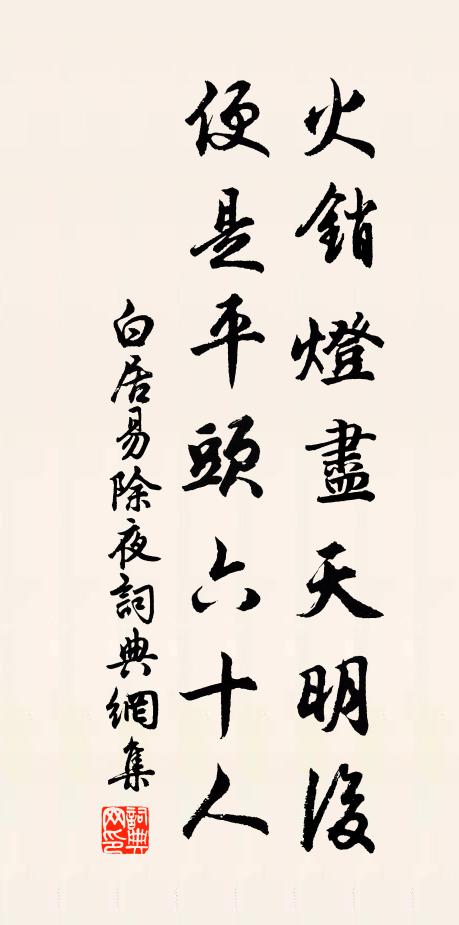 火銷燈盡天明後
便是平頭六十人
白居易除夜詞典網集
詞典網印